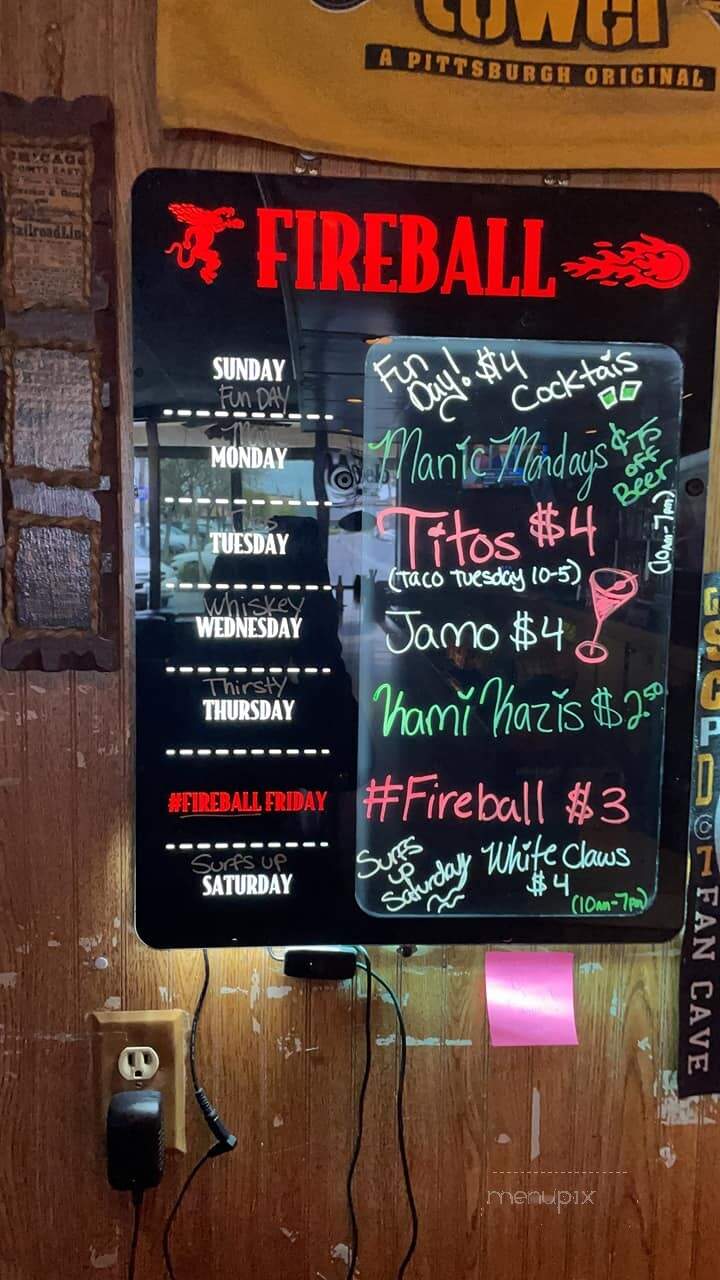 towel
A PITTSBURGH ORIGINAL
FIREBALL
SUNDAY
Fun DAY
Fun Day! $4 Cocktails
MONDAY
Manic Mondays
off
Beer
(10am-7pm)
TUESDAY
Titos $4
(Taco Tuesday 10-5)
Whiskey
WEDNESDAY
Jamo $4
Thirsty
THURSDAY
Kami Kazis $2.50
#FIREBALL FRIDAY
#Fireball $3
Surfs up
SATURDAY
Surfs up Saturday White Claws
$4
(10am-7pm)
CHICAGO
FAN CAVE
menupix